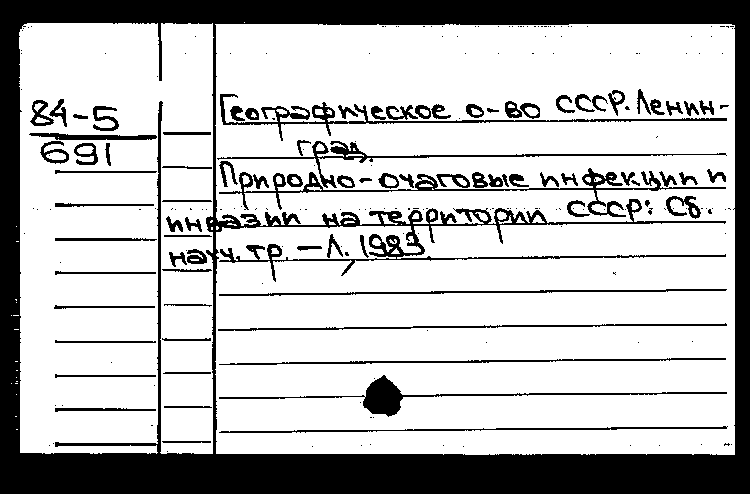 84-5
691
Географическое о-во СССР. Ленин-
град.
Природно-очаговые инфекции и
инвазии на территории СССР: Сб.
науч. тр. — Л., 1983.